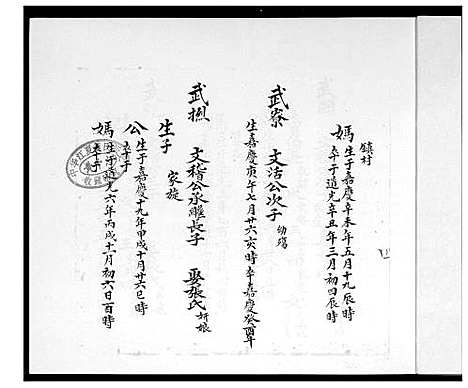 鎮村
媽生于嘉慶辛未年五月十九辰時
卒于道光辛丑年三月初四辰時
武寮 文活公次子 幼殤
生嘉慶庚午七月廿六亥時卒嘉慶癸酉年
武撫 文稽公承雕長子 娶張氏 妍娘
生子 家旋
公生于嘉慶十九年甲戌十月廿六巳時
卒于
媽生于道光六年丙戌十一月初六日酉時
卒于